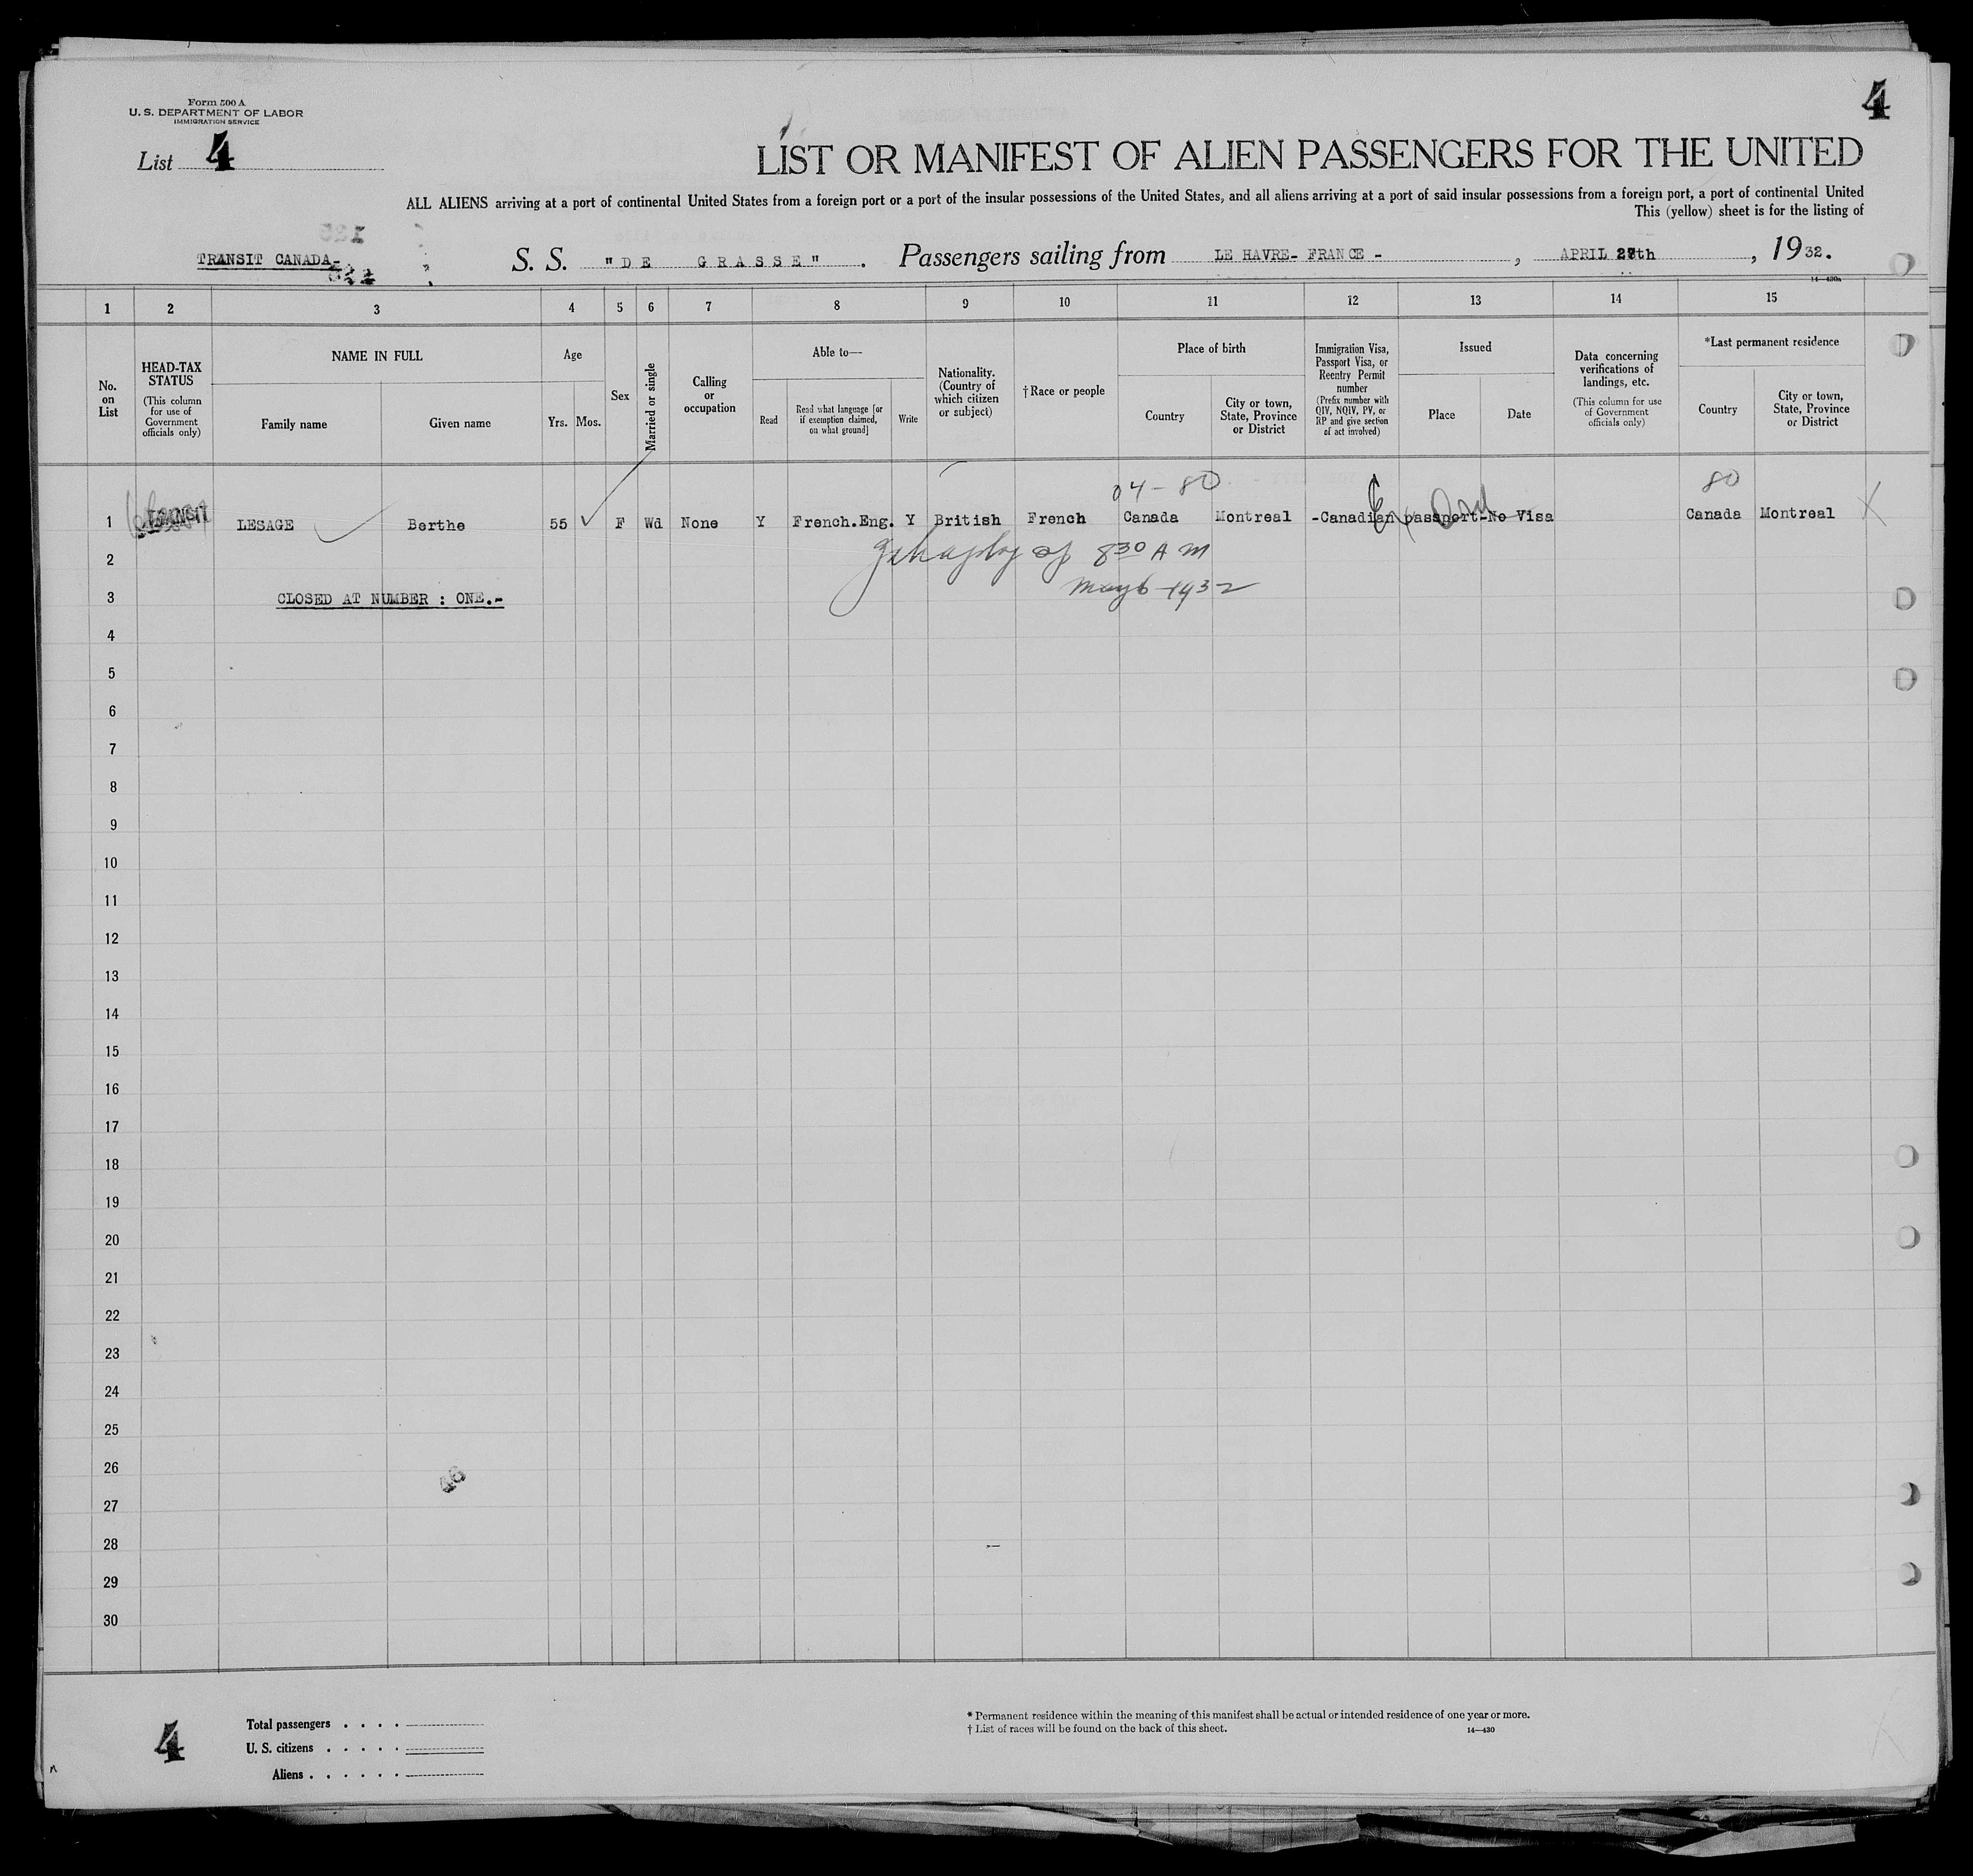 Form 500 A
U. S. DEPARTMENT OF LABOR
IMMIGRATION SERVICE
4
List 4
LIST OR MANIFEST OF ALIEN PASSENGERS FOR THE UNITED
ALL ALIENS arriving at a port of continental United States from a foreign port or a port of the insular possessions of the United States, and all aliens arriving at a port of said insular possessions from a foreign port, a port of continental United
This (yellow) sheet is for the listing of
TRANSIT CANADA- S. S. "DE GRASSE". Passengers sailing from LE HAVRE- FRANCE - , APRIL th , 1932.
14—430a
1 2 3 4 5 6 7 8 9 10 11 12 13 14 15
No. on List
HEAD-TAX STATUS
(This column for use of Government officials only)
NAME IN FULL
Family name
Given name
Age
Yrs.
Mos.
Sex
Married or single
Calling or occupation
Able to—
Read
Read what language [or if exemption claimed, on what ground]
Write
Nationality. (Country of which citizen or subject)
† Race or people
Place of birth
Country
City or town, State, Province or District
Immigration Visa, Passport Visa, or Reentry Permit number
(Prefix number with QIV, NQIV, PV, or RP and give section of act involved)
Issued
Place
Date
Data concerning verifications of landings, etc.
(This column for use of Government officials only)
*Last permanent residence
Country
City or town, State, Province or District
04-80 80
1 TRANSIT LESAGE Berthe 55 F Wd None Y French.Eng. Y British French Canada Montreal -Canadian passport-No Visa Canada Montreal X
2 8 30 A M
May 6 1932
3 CLOSED AT NUMBER : ONE.-
4
5
6
7
8
9
10
11
12
13
14
15
16
17
18
19
20
21
22
23
24
25
26
46
27
28
29
30
4
Total passengers . . . .
U. S. citizens . . . . .
Aliens . . . . . .
* Permanent residence within the meaning of this manifest shall be actual or intended residence of one year or more.
† List of races will be found on the back of this sheet. 14—430